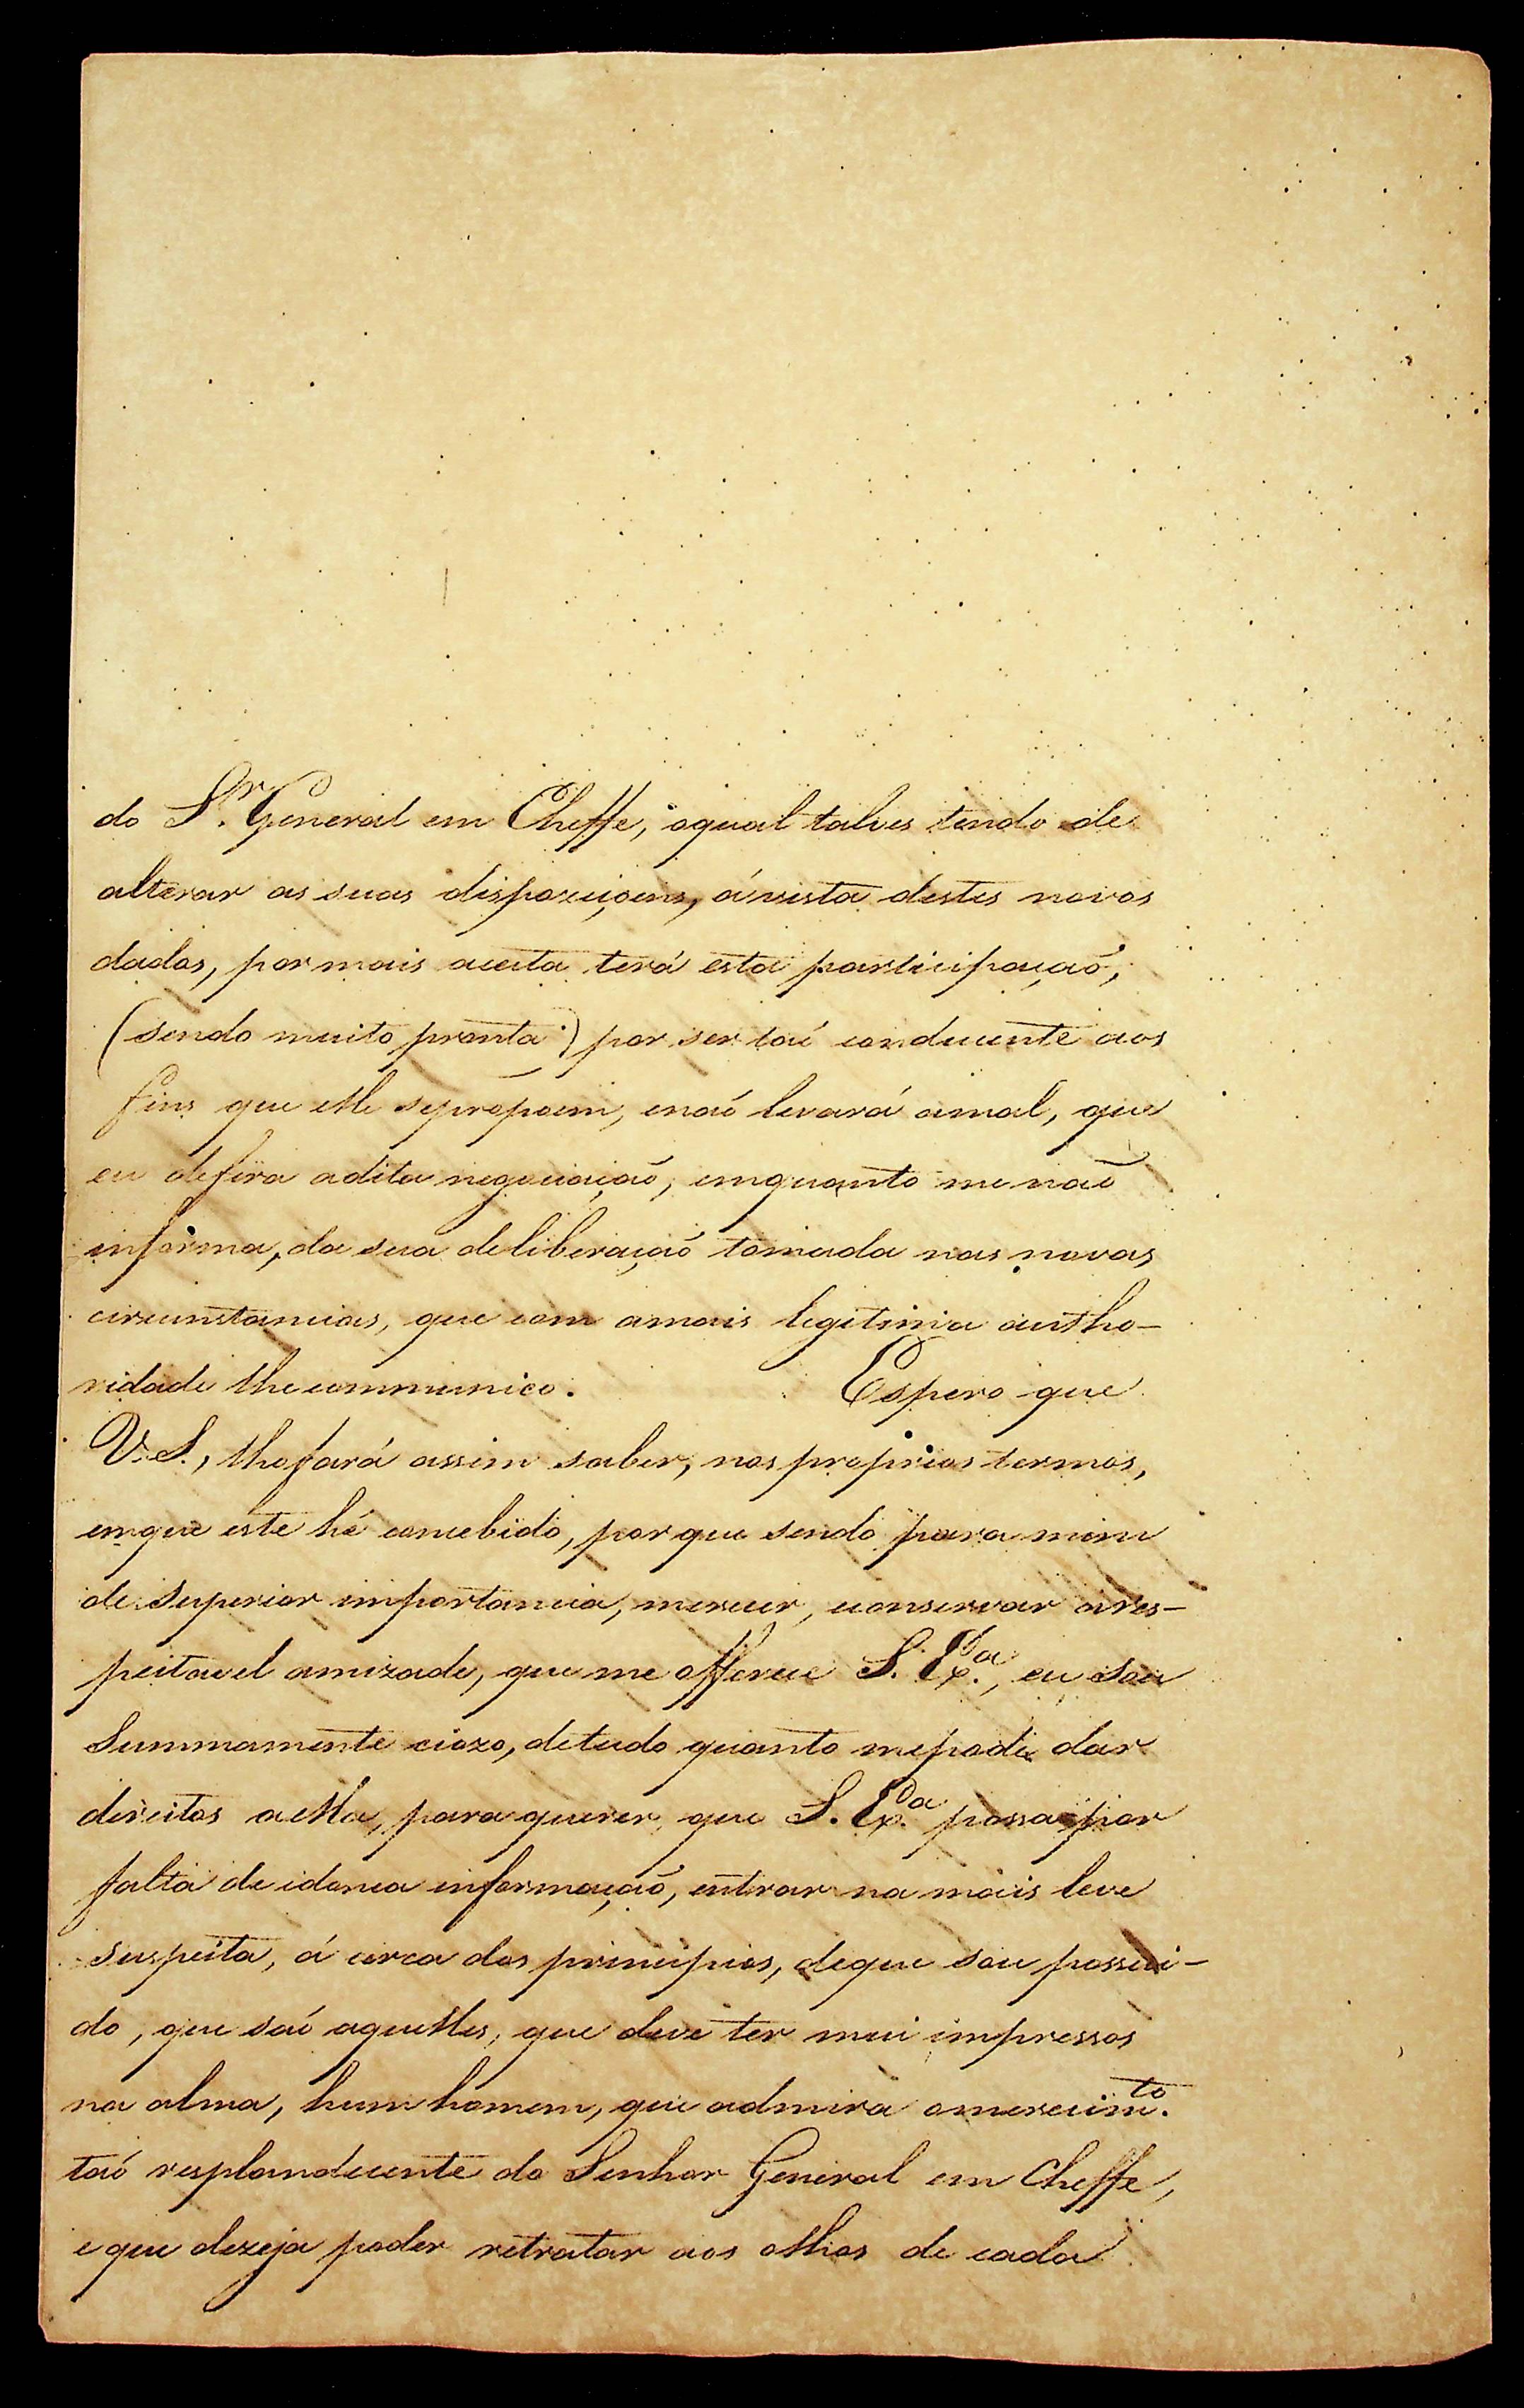 do S.r General em Cheffe, oqual talves tendo de
alterar as suas dispoziçoens, ávista destes novos
dados, por mais aceita terá esta participaçaõ,
(sendo muito pronta) por ser taõ conducente aos
fins que elle sepropoem, enaõ levará amal, que
eu defira adita negociaçaõ, emquanto me naõ
informa, da sua deliberaçaõ tomada nas novas
circunstancias, que com amais legitima autho-
ridade lhe communico. Espero que
V. S., lhofará assim saber, nos proprios termos,
emque este hé concebido, porque sendo para mim
de superior importancia, merecer, conservar ares-
peitavel amizade, que me offerece S. Ex.a, eu sou
Summamente ciozo, detudo quanto mepode dar
direitos aella, para querer, que S. Ex.a possa por
falta de idonea informaçaõ, entrar na mais leve
suspeita, á cerca dos principios, deque sou possui-
do, que saõ aquelles, que deve ter mui impressos
na alma, hum homem, que admira omerecim.to
taõ resplandecente do Senhor General em Cheffe,
e que dezeja poder retratar aos olhos de cada